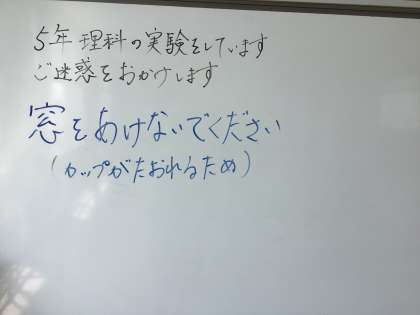 5年 理科の実験をしています
ご迷惑をおかけします
窓をあけないでください
(カップがたおれるため)